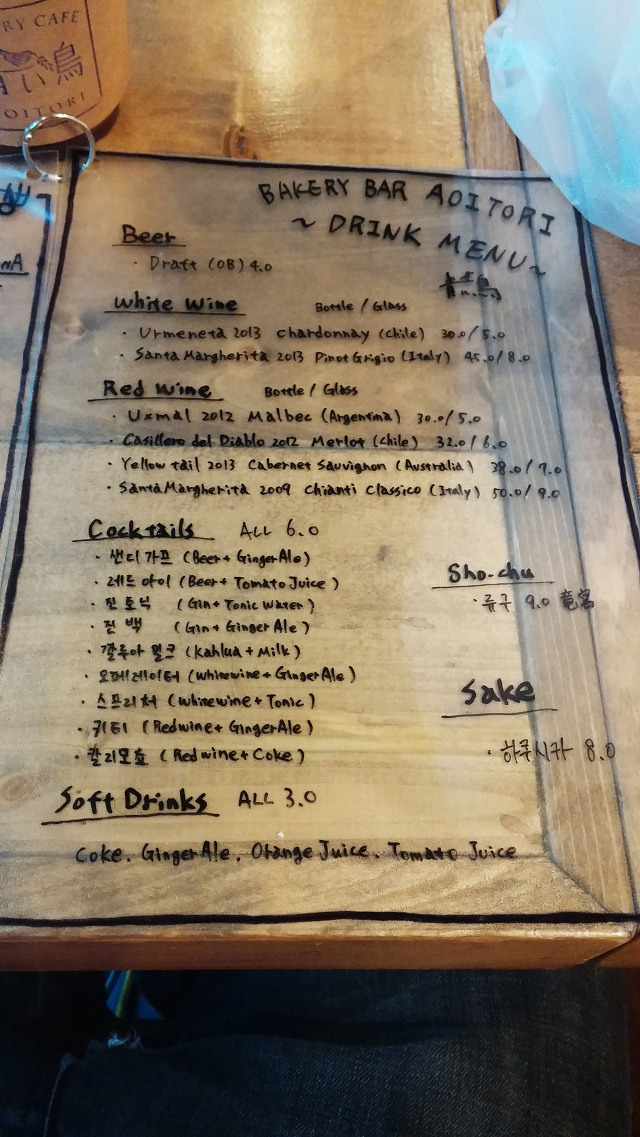 RY CAFE
い鳥
OITORI
BAKERY BAR AOITORI
~ DRINK MENU ~
青い鳥
Beer
· Draft (OB) 4.0
White Wine Bottle / Glass
· Urmeneta 2013 Chardonnay (Chile) 30.0 / 5.0
· Santa Margherita 2013 Pinot Grigio (Italy) 45.0 / 8.0
Red Wine Bottle / Glass
· Uxmal 2012 Malbec (Argentina) 30.0 / 5.0
· Casillero del Diablo 2012 Merlot (Chile) 32.0 / 6.0
· Yellow tail 2013 Cabernet Sauvignon (Australia) 38.0 / 7.0
· Santa Margherita 2009 Chianti Classico (Italy) 50.0 / 9.0
Cocktails ALL 6.0
· 샌디가프 (Beer + Ginger Ale)
· 레드아이 (Beer + Tomato Juice)
· 진토닉 (Gin + Tonic Water)
· 진백 (Gin + Ginger Ale)
· 깔루아 밀크 (Kahlua + Milk)
· 오퍼레이터 (Whitewine + Ginger Ale)
· 스프리처 (Whitewine + Tonic)
· 키티 (Redwine + Ginger Ale)
· 칼리모쵸 (Redwine + Coke)
Sho-chu
· 류구 9.0 竜宮
Sake
· 하루시카 8.0
Soft Drinks ALL 3.0
Coke. Ginger Ale. Orange Juice. Tomato Juice